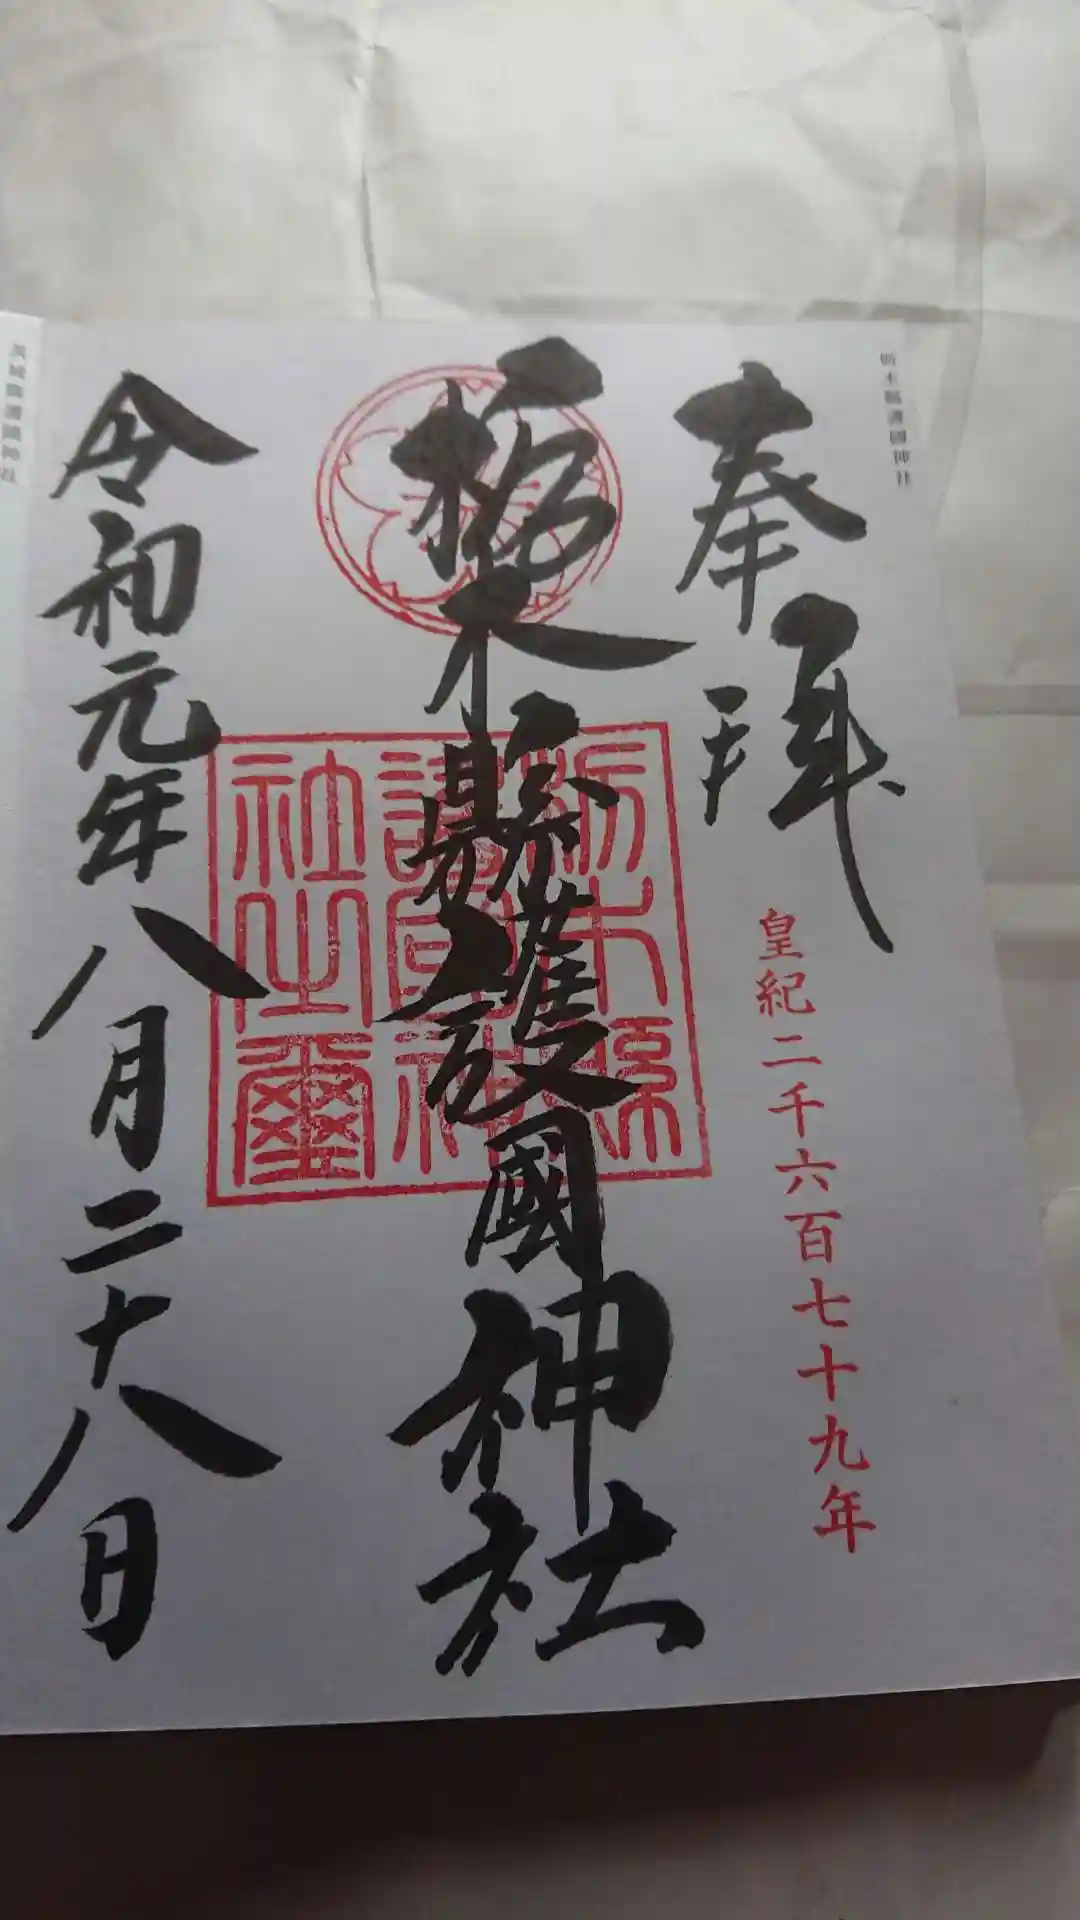 栃木縣護國神社
奉拜
皇紀二千六百七十九年
栃木縣護國神社
栃木縣
護國神
社之璽
令和元年八月二十八日